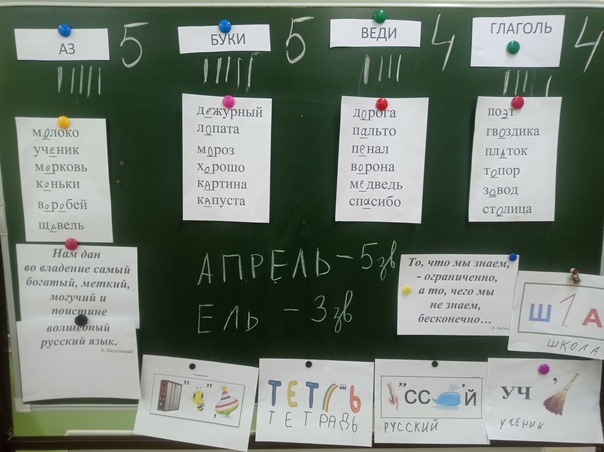 АЗ 5
БУКИ 5
ВЕДИ 4
ГЛАГОЛЬ 4
молоко
ученик
морковь
коньки
воробей
щавель
дежурный
лопата
мороз
хорошо
картина
капуста
дорога
пальто
пенал
ворона
медведь
спасибо
поэт
гвоздика
платок
топор
завод
столица
Нам дан
во владение самый
богатый, меткий,
могучий и
поистине
волшебный
русский язык.
АПРЕЛЬ - 5зв
ЕЛЬ - 3зв
То, что мы знаем,
- ограниченно,
а то, чего мы
не знаем,
бесконечно...
Ш 1 А
ШКОЛА
" " ,
ТЕТ """ Ь
ТЕТРАДЬ
" СС ' Й
РУССКИЙ
УЧ '
УЧЕНИК